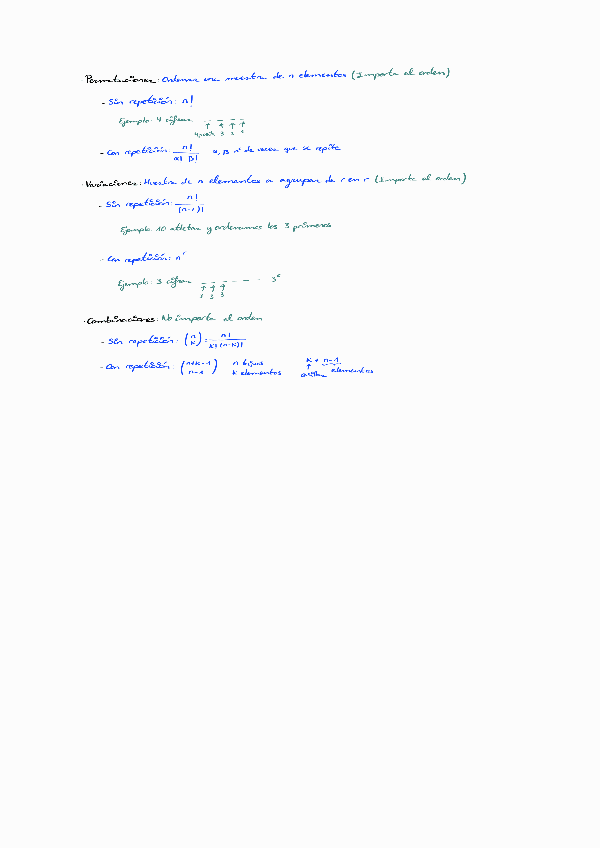 Permutaciones: Ordenar una muestra de n elementos (Importa el orden)
- Sin repetición: n!
Ejemplo: 4 cifras
4 3 2 1
- Con repetición: n! / α! β! α, β nº de veces que se repite
· Variaciones: Muestra de n elementos a agrupar de r en r (Importa el orden)
- Sin repetición: n! / (n-r)!
Ejemplo 10 atletas y ordenamos los 3 primeros
- Con repetición: n^r
Ejemplo: 3 cifras - - -
3 3 3
· Combinaciones: No importa el orden
- Sin repetición: (n k) = n! / k! (n-k)!
- Con repetición: (n+k-1 n-1) n bijas k + n-1
k elementos elementos